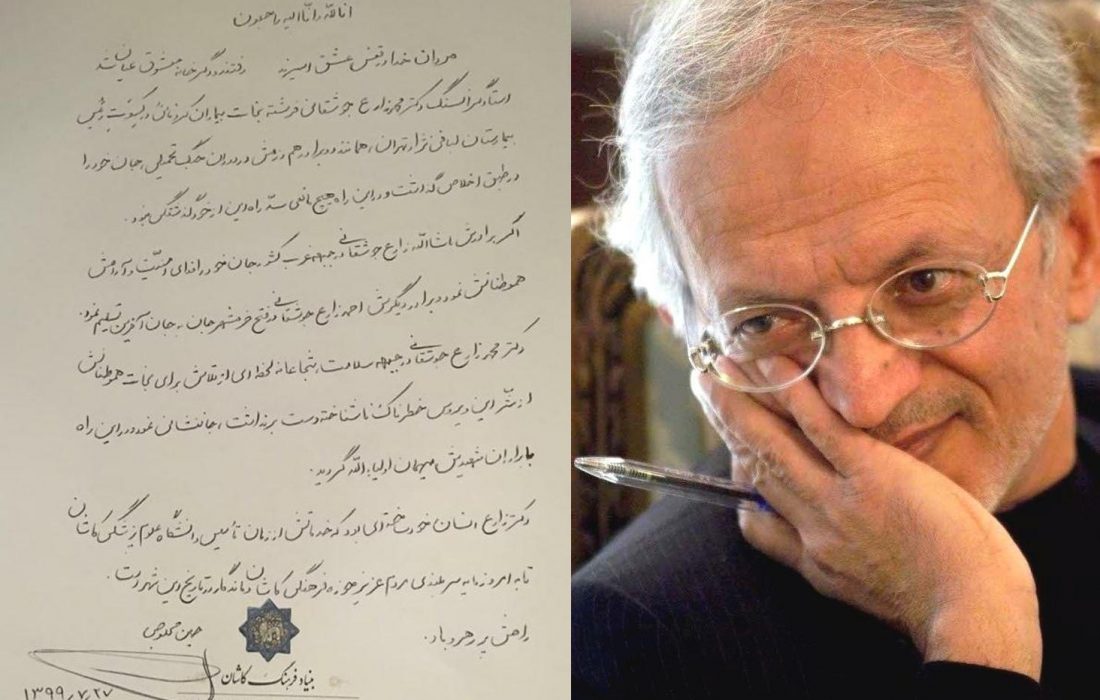 انا لله و انا الیه راجعون
مردان خدا در قفس عشق اسیرند رفتند و دگر خانه معشوق عیانند
استاد گرانسنگ دکتر محمد زارع جوشقانی فرشته نجات بیماران کرونائی و کیکوبت رئیس
بیمارستان لبافی نژاد تهران، همانند دو برادر هم رزمش در دوران جنگ تحمیلی، جان خود را
در طبق اخلاص گذاشت و در این راه هیچ مانعی سد راه این از خود گذشتگی نبود.
اگر برادرش ماشاالله زارع جوشقانی در جبهه غرب کشور جان خود را فدای امنیت و آرامش
هموطنانش نمود و برادر دیگرش احمد زارع جوشقانی در فتح خرمشهر جان به جان آفرین تسلیم نمود.
دکتر محمد زارع جوشقانی در جبهه سلامت، شجاعانه لحظه ای از تلاش برای نجات هموطنانش
از شر این ویروس خطرناک ناشناخته دست برنداشت، جانفشانی نمود و در این راه
با یاران شهیدش میهمان اولیاء الله گردید.
دکتر زارع انسان خودساخته ای بود که خدماتش از زمان تأسیس دانشگاه علوم پزشکی کاشان
تا به امروز مایه سربلندی مردم عزیز حوزه فرهنگی کاشان و ماندگار در تاریخ این شهر است.
راهش پر رهرو باد.
حسین محلوجی
بنیاد فرهنگ کاشان
۱۳۹۹٫۷٫۲۷